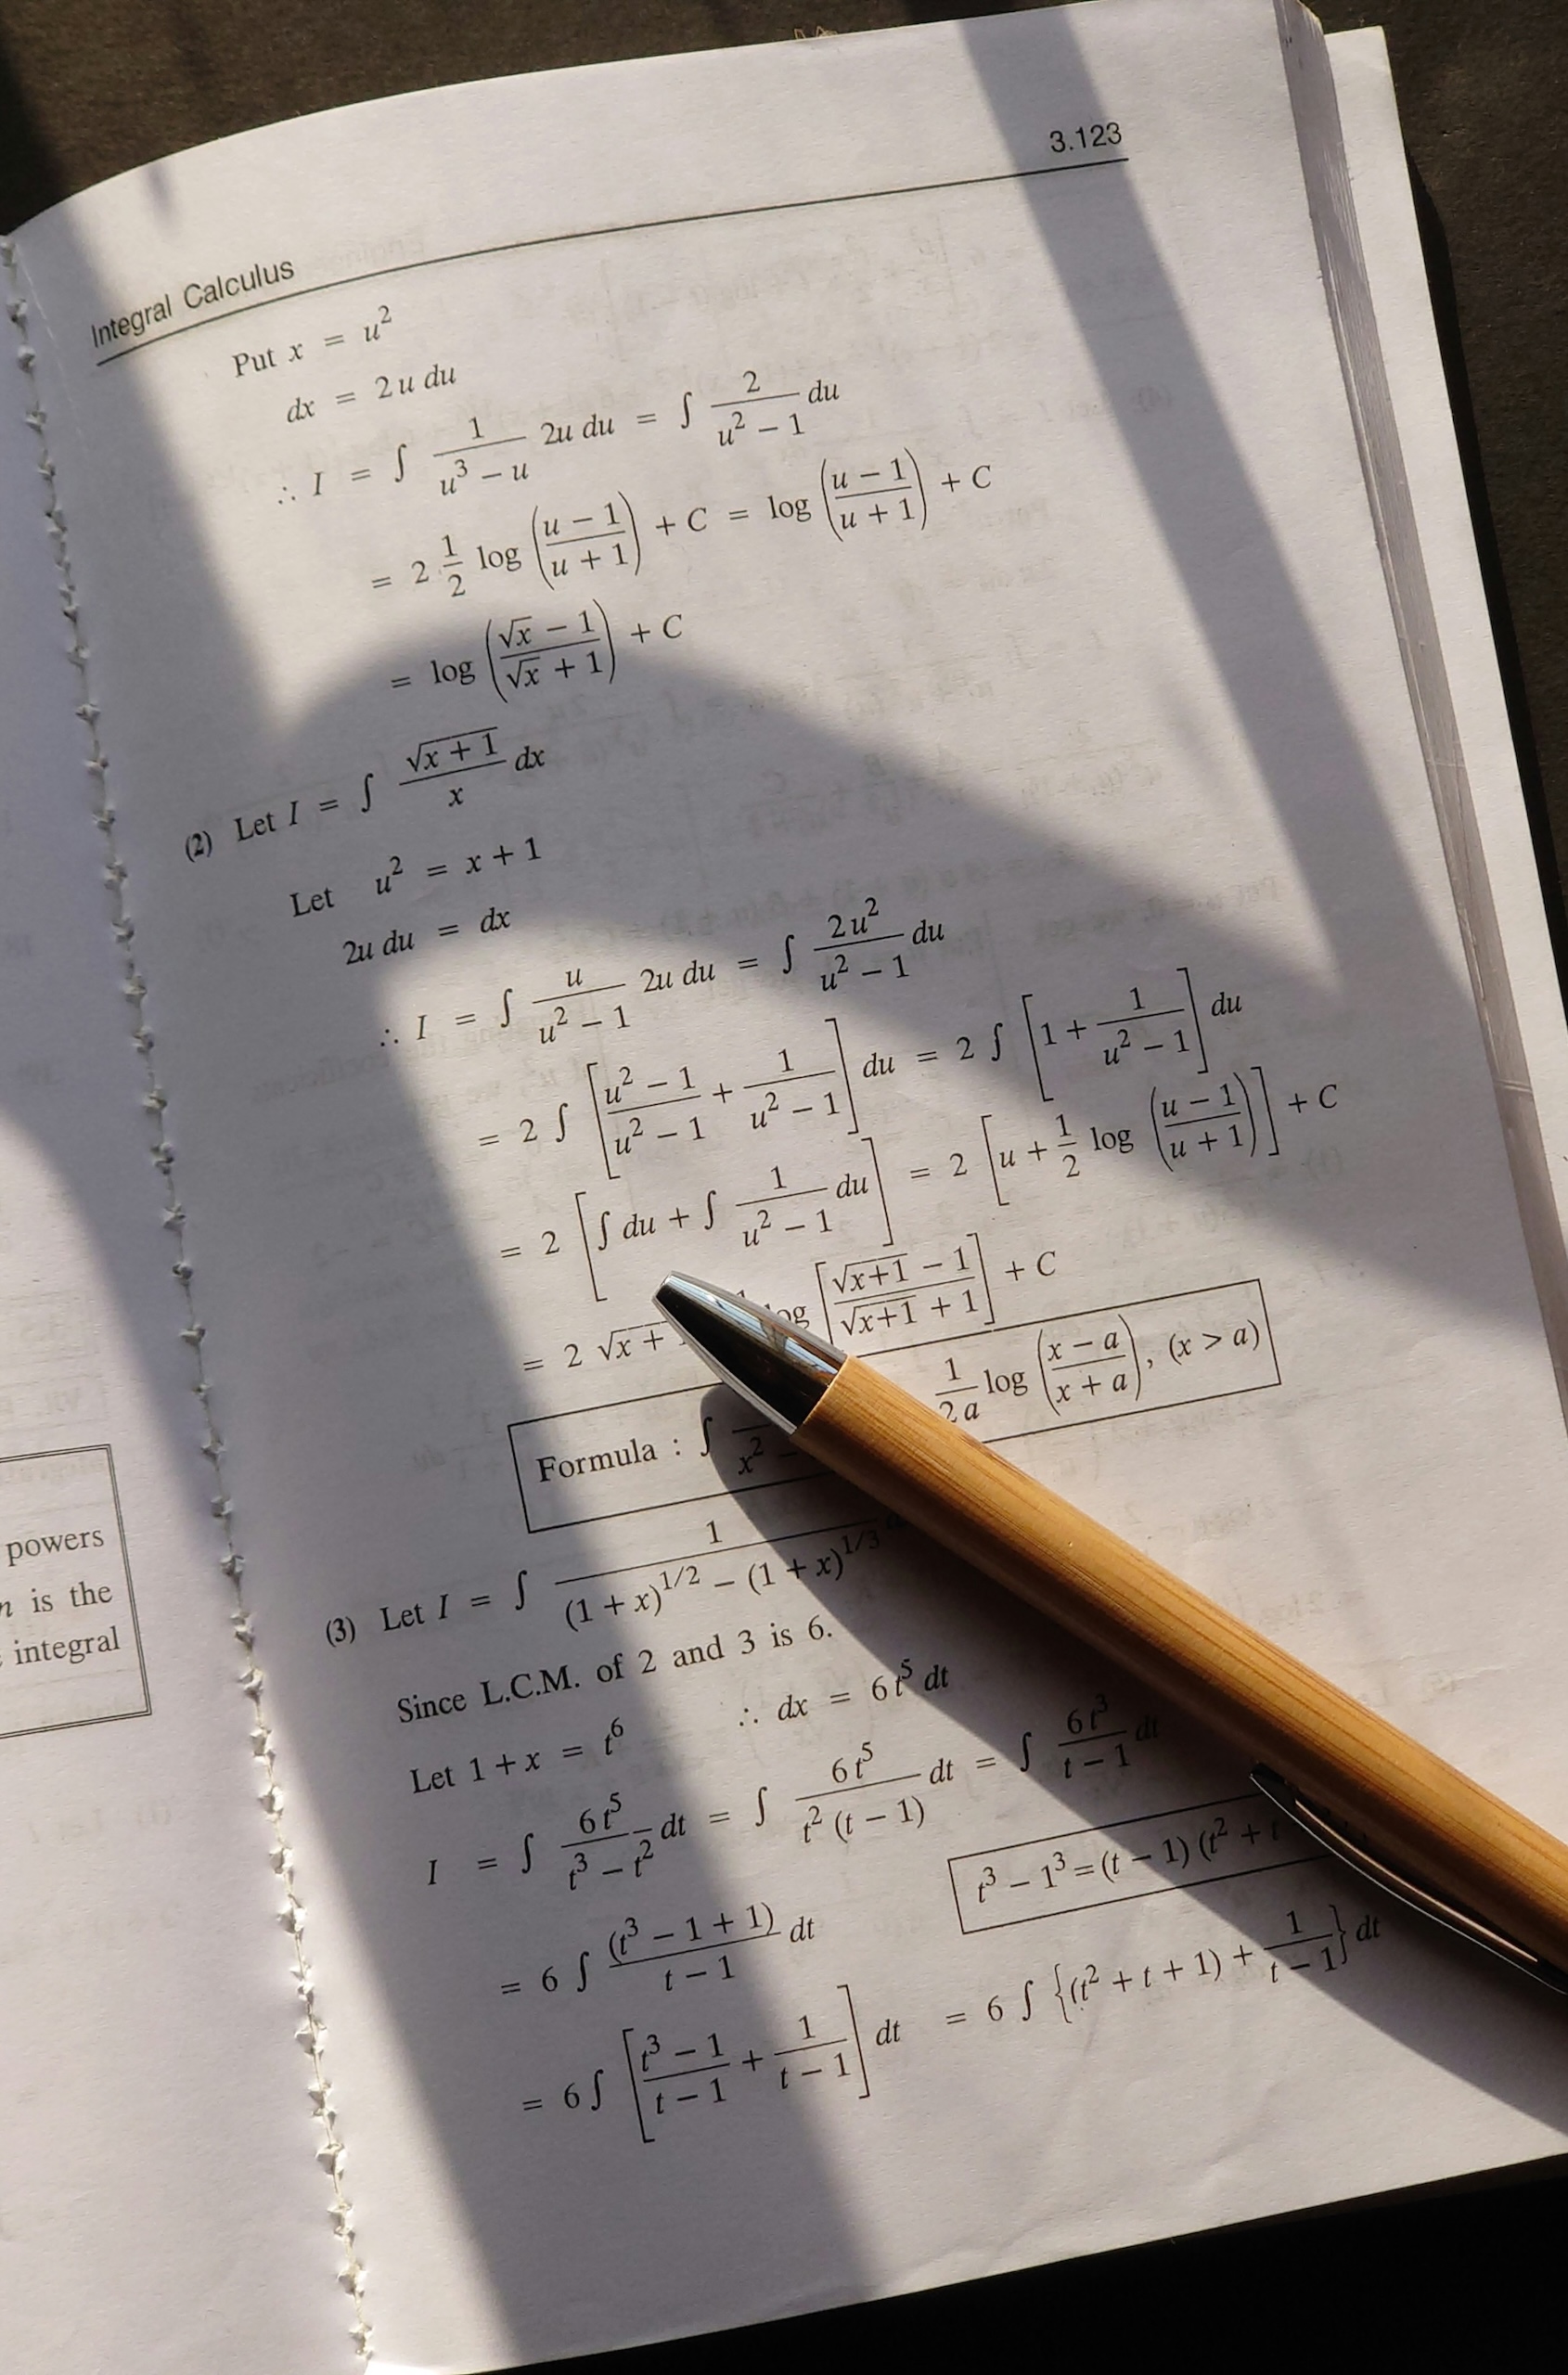 3.123
Integral Calculus
Put x = u²
dx = 2u du
∴ I = ∫ 1/(u³ − u) 2u du = ∫ 2/(u² − 1) du
= 2 · 1/2 log ((u − 1)/(u + 1)) + C = log ((u − 1)/(u + 1)) + C
= log ((√x − 1)/(√x + 1)) + C
(2) Let I = ∫ √(x + 1)/x dx
Let u² = x + 1
2u du = dx
∴ I = ∫ u/(u² − 1) 2u du = ∫ 2u²/(u² − 1) du
= 2 ∫ [(u² − 1)/(u² − 1) + 1/(u² − 1)] du = 2 ∫ [1 + 1/(u² − 1)] du
= 2 [∫ du + ∫ 1/(u² − 1) du] = 2 [u + 1/2 log ((u − 1)/(u + 1))] + C
= 2 √x + log [(√(x+1) − 1)/(√(x+1) + 1)] + C
Formula : ∫ x² − 1/(2a) log ((x − a)/(x + a)), (x > a)
(3) Let I = ∫ 1/((1 + x)^(1/2) − (1 + x)^(1/3))
Since L.C.M. of 2 and 3 is 6.
Let 1 + x = t⁶ ∴ dx = 6t⁵ dt
I = ∫ 6t⁵/(t³ − t²) dt = ∫ 6t⁵/(t² (t − 1)) dt = ∫ 6t³/(t − 1) dt
t³ − 1³ = (t − 1) (t² + t
= 6 ∫ (t³ − 1 + 1)/(t − 1) dt
= 6 ∫ [(t³ − 1)/(t − 1) + 1/(t − 1)] dt = 6 ∫ {(t² + t + 1) + 1/(t − 1)} dt
powers
n is the
integral